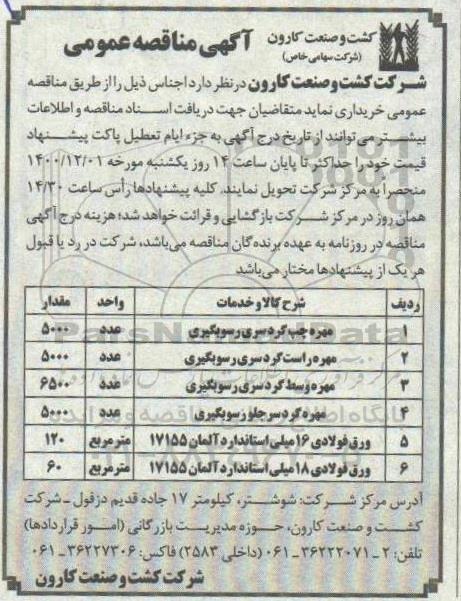 کشت و صنعت کارون
(شرکت سهامی خاص)
آگهی مناقصه عمومی
شرکت کشت و صنعت کارون در نظر دارد اجناس ذیل را از طریق مناقصه
عمومی خریداری نماید متقاضیان جهت دریافت اسناد مناقصه و اطلاعات
بیشتر می توانند از تاریخ درج آگهی به جزء ایام تعطیل پاکت پیشنهاد
قیمت خود را حداکثر تا پایان ساعت ۱۴ روز یکشنبه مورخه ۱۴۰۰/۱۲/۰۱
منحصراً به مرکز شرکت تحویل نمایند. کلیه پیشنهادها رأس ساعت ۱۴/۳۰
همان روز در مرکز شرکت بازگشایی و قرائت خواهد شد؛ هزینه درج آگهی
مناقصه در روزنامه به عهده برنده گان مناقصه می‌باشد، شرکت در رد یا قبول
هر یک از پیشنهادها مختار می‌باشد
ردیف شرح کالا و خدمات واحد مقدار
۱ مهره چپ گرد سری رسوبگیری عدد ۵۰۰۰
۲ مهره راست گرد سری رسوبگیری عدد ۵۰۰۰
۳ مهره وسط گرد سری رسوبگیری عدد ۶۵۰۰
۴ مهره گرد سر جلو رسوبگیری عدد ۵۰۰۰
۵ ورق فولادی ۱۶ میلی استاندارد آلمان ۱۷۱۵۵ متر مربع ۱۲۰
۶ ورق فولادی ۱۸ میلی استاندارد آلمان ۱۷۱۵۵ متر مربع ۶۰
آدرس مرکز شرکت: شوشتر، کیلومتر ۱۷ جاده قدیم دزفول - شرکت
کشت و صنعت کارون، حوزه مدیریت بازرگانی (امور قراردادها)
تلفن: ۲ - ۳۶۲۲۲۰۷۱ - ۰۶۱ (داخلی ۲۵۸۳) فاکس: ۳۶۲۲۷۳۰۶ - ۰۶۱
شرکت کشت و صنعت کارون